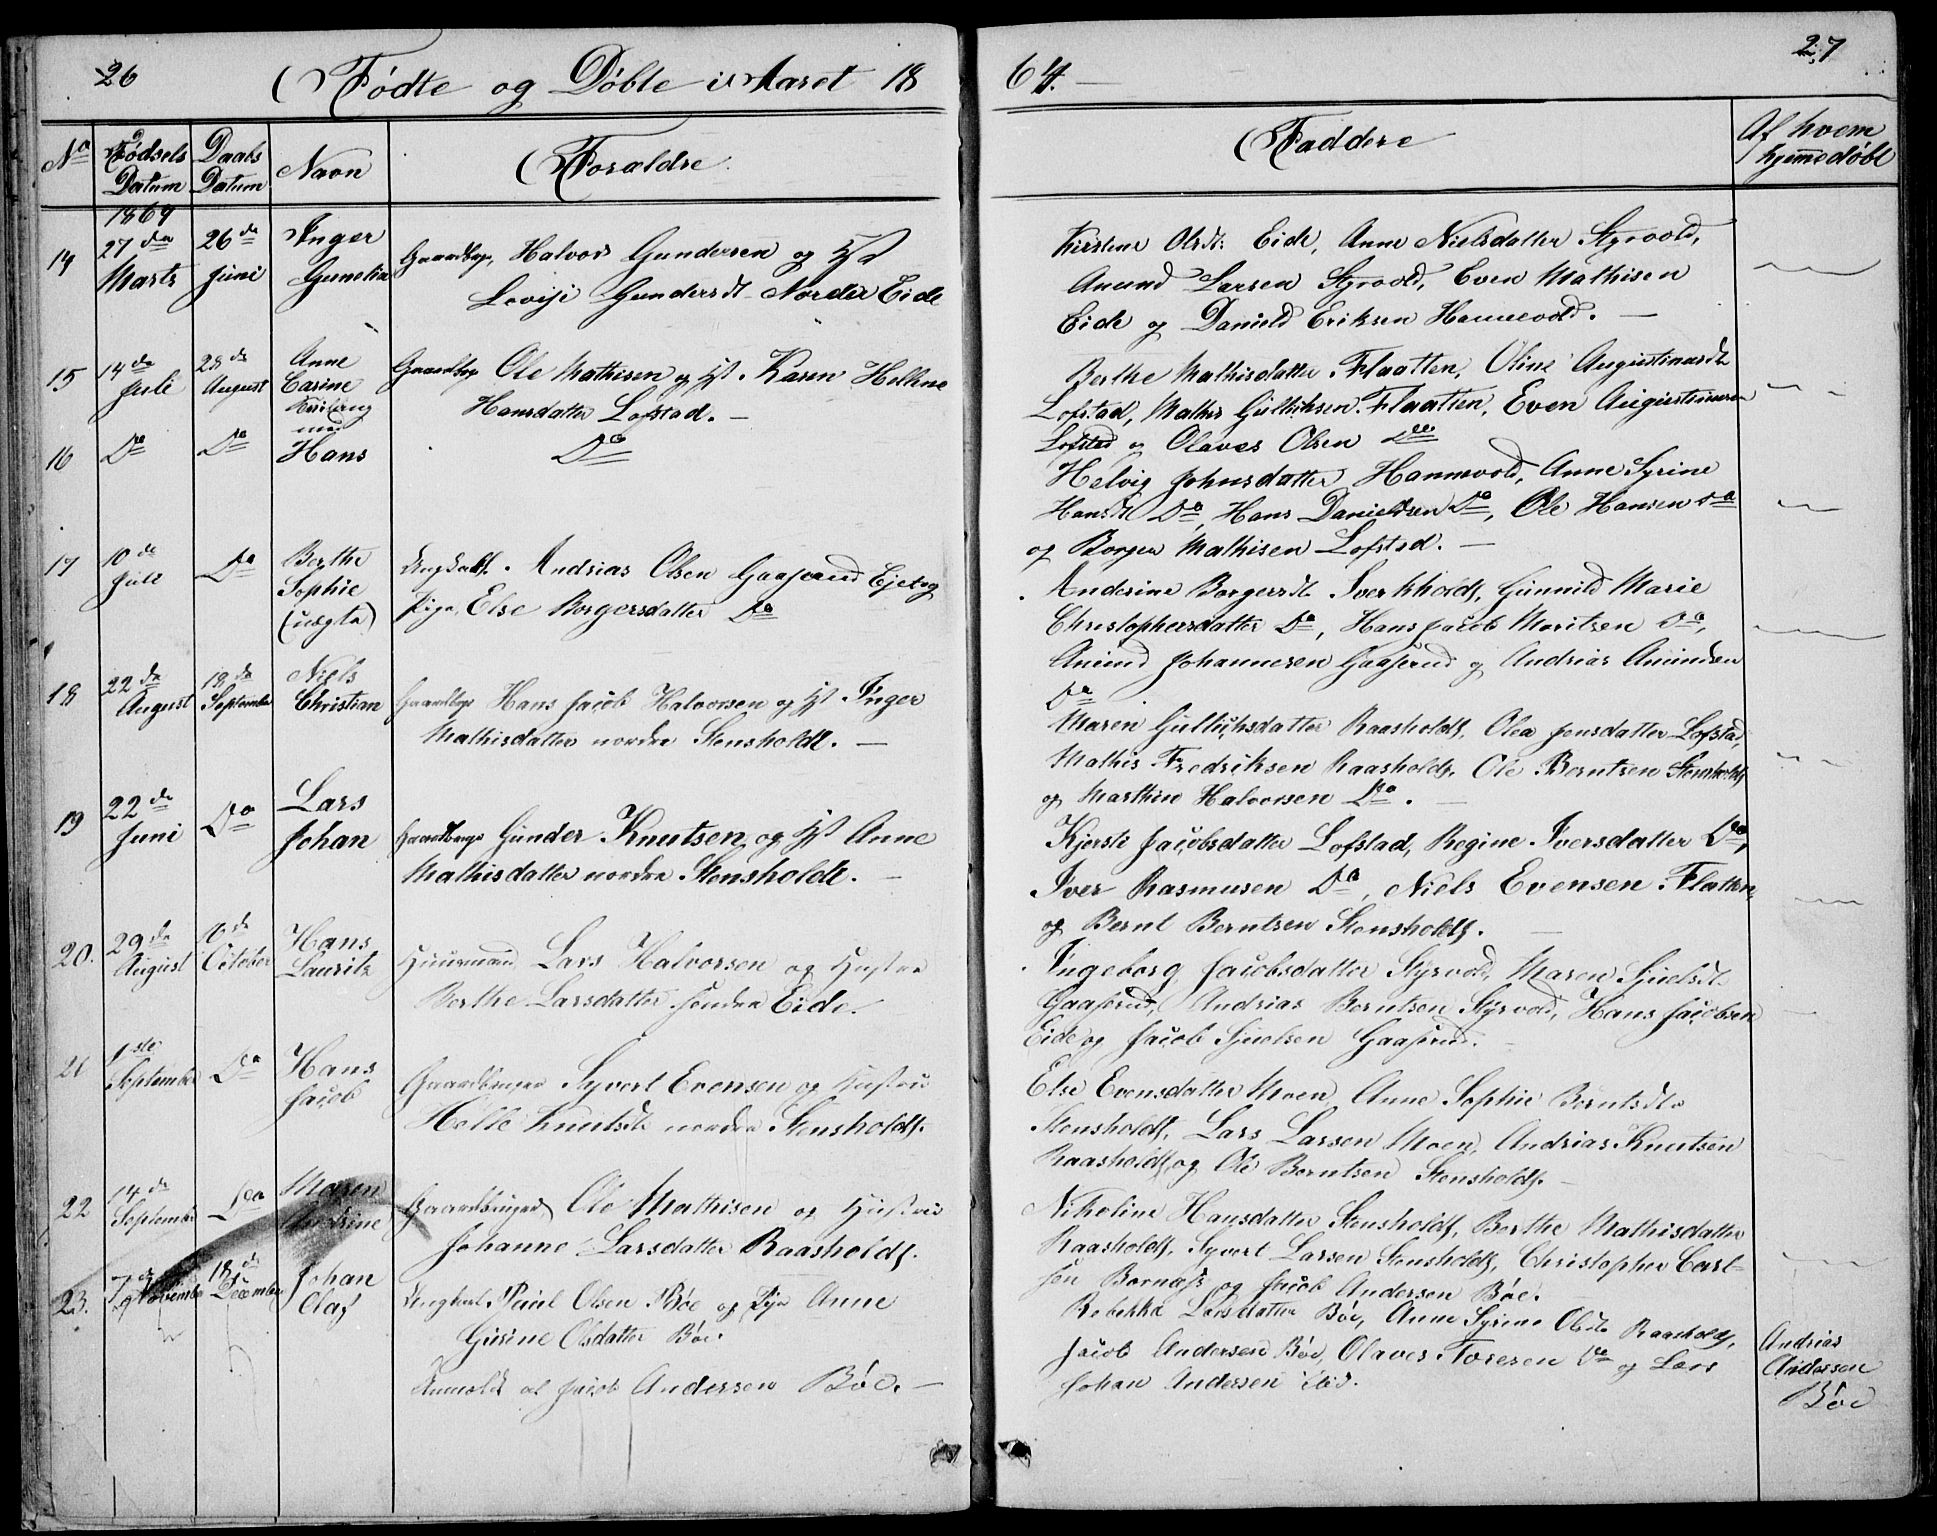 26
Fødte og Døbte i Aaret 18
64.
27
No
Fødsels Datum
Daabs Datum
Navn
Forældre.
Faddere
Af hvem hjemmedøbt
1864
14
27de Marts
26de Juni
Inger Gunelia
Gaardbrg. Halvor Gundersen og Hst
Lovise Gundersdt. Nordre Eide
Kirstine Olsdt: Eide, Anne Nielsdatter Styrvold,
Amund Larsen Styrvold, Even Mathisen
Eide og Danield Eriksen Hannevold. —
15
14de Juli
28de August
Anne Carine
Gaardbrg Ole Mathisen og Hst. Karen Helene
Hansdatter Lofstad. —
Berthe Mathisdatter Flaatten, Oline Augustinusdt
Lofstad, Mathis Gulliksen Flaatten, Even Augustinusen
Lofstad og Olaves Olsen Do
16
Do
Do
Tvilling med
Hans
Do
Helvig Johnsdatter Hannevold, Anne Syrine
Hansdt Do, Hans Danieldsen Do, Ole Hansen Do
og Borger Mathisen Lofstad. —
17
10de Juli
Do
Berthe Sophie (uægte)
Ungkarl. Andrias Olsen Gaaserud Eje og
Pige Else Borgersdatter Do
Anderine Borgersdt. Sverkholdt, Gunnild Marie
Christophersdatter Do, Hans Jacob Moritsen Do,
Amund Johannesen Gaaserud og Andrias Amundsen
Do
18
22de August
18de September
Niels Christian
Gaardbrg Hans Jacob Halvorsen og Hst. Inger
Mathisdatter nordre Stensholdt. —
Maren Gulliksdatter Raasholdt, Olea Jensdatter Lofstad,
Mathis Fredriksen Raasholdt, Ole Berntsen Stensholdt
og Marthin Halvorsen Do. —
19
22de Juni
Do
Lars Johan
Gaardbrg Gunder Knutsen og Hst Anne
Mathisdatter nordre Stensholdt. —
Kjersti Jacobsdatter Lofstad, Regine Iversdatter Do,
Iver Rasmusen Do, Niels Evensen Flatten,
og Bernt Berntsen Stensholdt. —
20.
29de August
16de October
Hans Lauritz
Huusmand Lars Halvorsen og Hustru
Berthe Larsdatter søndre Eide.
Ingeborg Jacobsdatter Styrvold, Maren Sjuelsdt.
Gaaserud, Andrias Berntsen Styrvold, Hans Jacobsen
Eide og Jacob Sjuelsen Gaaserud. —
21
1ste September
Do
Hans Jacob
Gaardbruger Syvert Evensen og Hustru
Helle Knutsdt nordre Stensholdt.
Else Evensdatter Moen, Anne Sophie Berntsdt.
Stensholdt, Lars Larsen Moen, Andrias Knutsen
Raasholdt og Ole Berntsen Stensholdt. —
22
14de September
Do
Maren Andrine
Gaardbruger Ole Mathisen og Hustru
Johanne Larsdatter Raasholdt.
Nikoline Hansdatter Stensholdt, Berthe Mathisdatter
Raasholdt, Syvert Larsen Stensholdt, Christopher Carl-
sen Bornaſs og Jacob Andersen Bøe.
23.
7de November
18de December
Johan Olaf
Ungkarl Paul Olsen Bøe og Pige Anne
Gurine Olsdatter Bøe.
Anmeldt af Jacob Andersen Bøe. —
Rebekka Larsdatter Bøe, Anne Syrine Olsdt Raasholdt,
Jacob Andersen Bøe, Olaves Toresen Do og Lars
Johan Andersen ibid.
Andrias
Andersen
Bøe